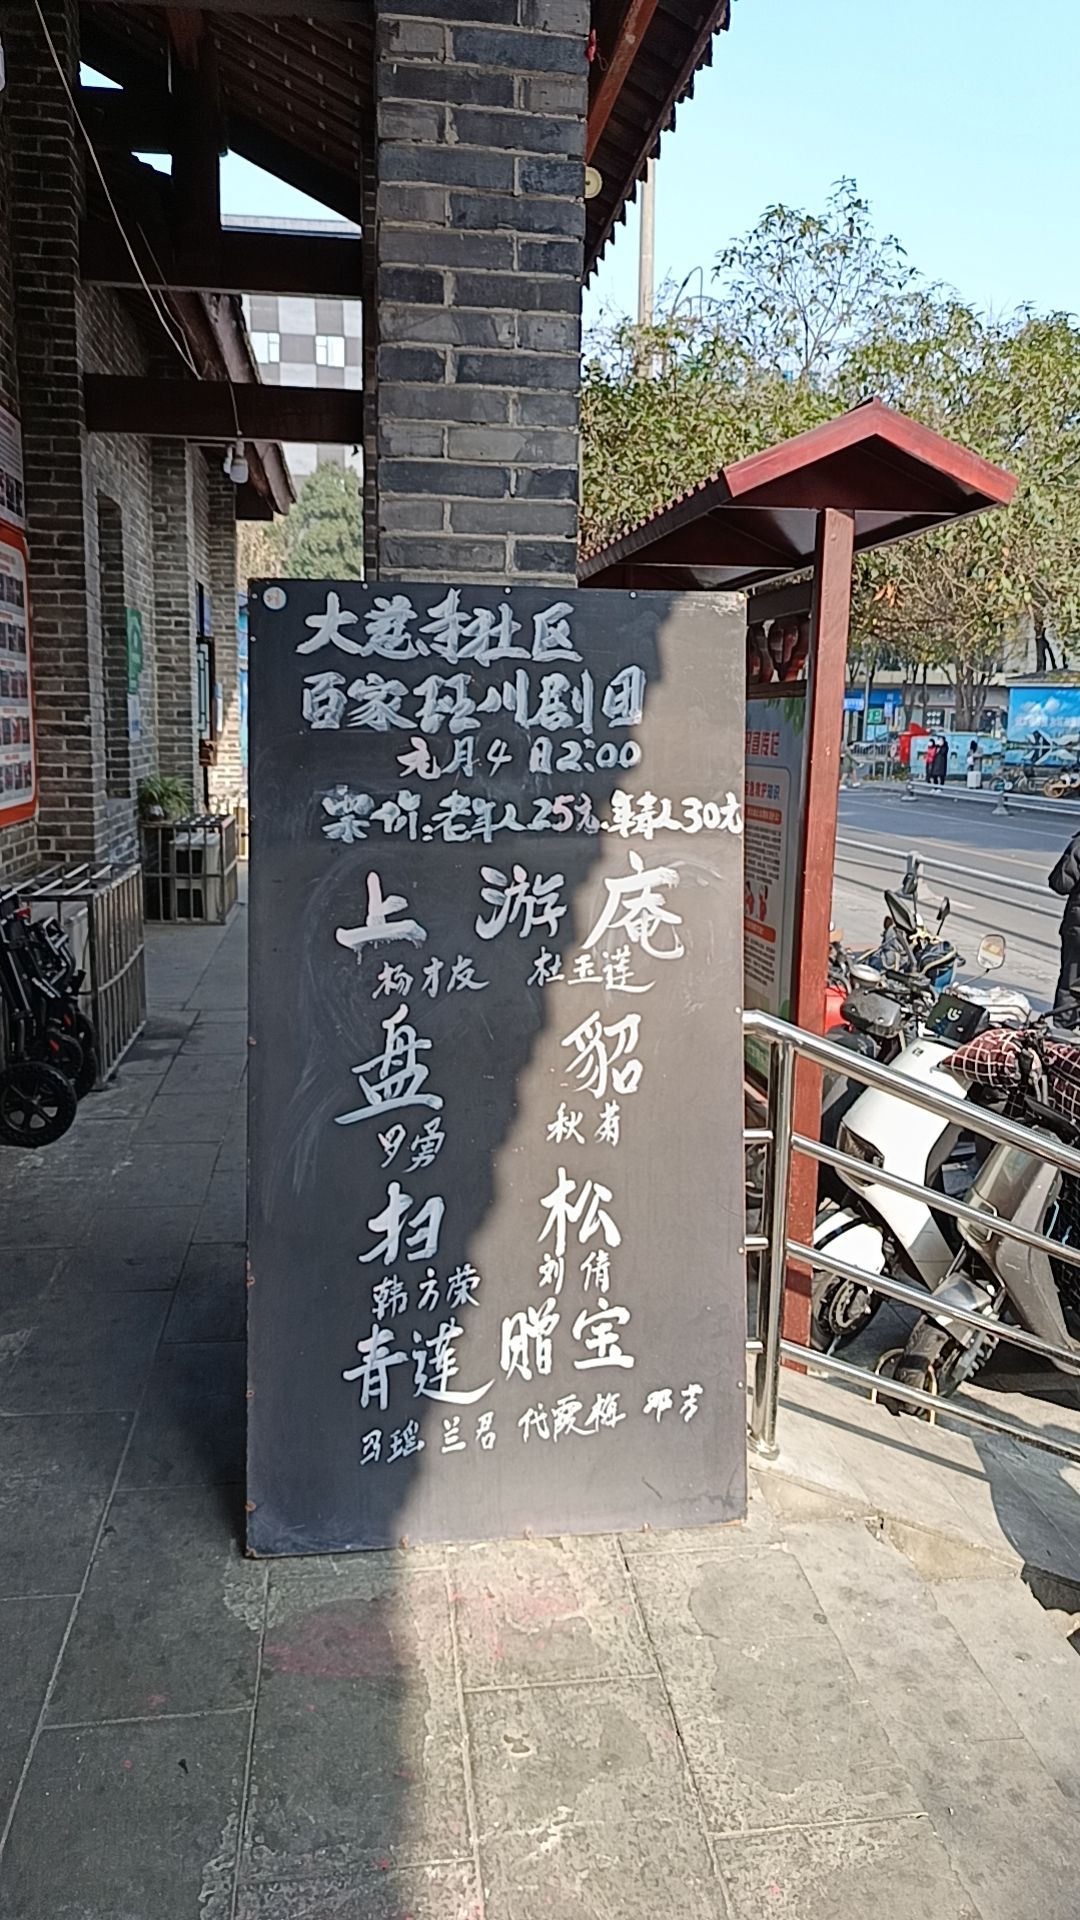 大慈寺社区
百家班川剧团
元月4日2:00
票价:老年人25元.年青人30元
上游庵
杨才友 杜玉莲
盘貂
罗勇 秋菊
扫松
韩方荣 刘倩
青莲赠宝
马瑶 兰君 代霞梅 邓芳